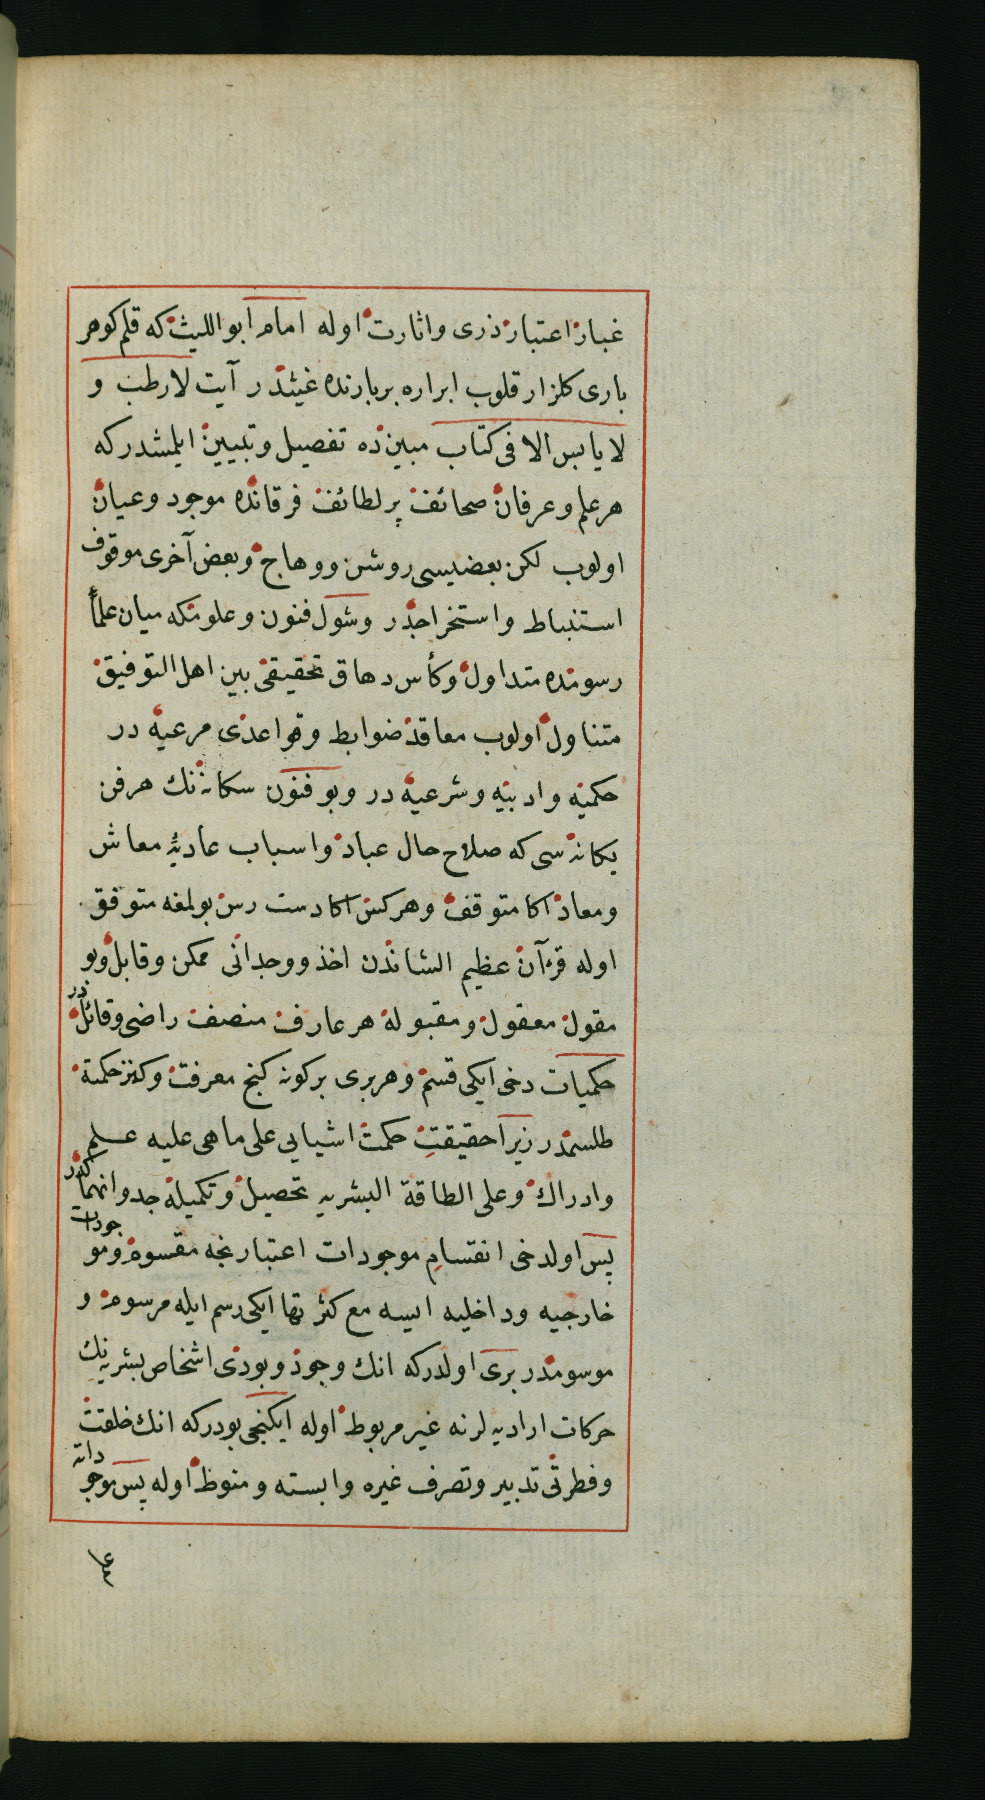 غبار اعتبار ذری واثارت اوله امام ابو الليث كه قلم كوهر
باری كلزار قلوب ابراره بر بارنده غیثدر آيت لا رطب و
لا يابس الا فی كتاب مبین ده تفصیل وتبیین ایلمشدر كه
هر علم وعرفان صحائف پر لطائف فرقانده موجود وعیان
اولوب لكن بعضیسی روشن ووهاج وبعض آخری موقوف
استنباط واستخراجدر وشول فنون وعلومكه میان علمأ
رسومنده متداول وكأس دهاق تحقیقی بین اهل التوفیق
متناول اولوب معاقد ضوابط وقواعدی مرعیه در
حكمیه وادبیه وشرعیه در وبو فنون سكانه نك هر فن
یكانه سی كه صلاح حال عباد واسباب عادیۀ معاش
ومعاد اكا متوقف وهركس اكا دست رس بولمغه متوفق
اوله قرءآن عظیم الشاندن اخذ ووجدانی ممكن وقابل وبو
مقول معقول ومقبوله هر عارف منصف راضی وقائلدر
حكمیات دخی ایكی قسم وهر بری بر كونه كنج معرفت وكنز حكمة
طلسمدر زیرا حقیقت حكمت اشیایی علی ماهی علیه علم
وادراك وعلی الطاقة البشریه تحصیل وتكمیله جد وانهماكدر
پس اولدخی انقسام موجودات اعتبارنجه مقسوم وموجودات
خارجیه وداخلیه ایسه مع كثرتها ایكی رسم ایله مرسوم و
موسومدر بری اولدركه انك وجود وبودی اشخاص بشریه نك
حركات ارادیه لرنه غیر مربوط اوله ایكنجی بودركه انك خلقت
وفطرتی تدبیر وتصرف غیره وابسته ومنوط اوله پس موجوداته